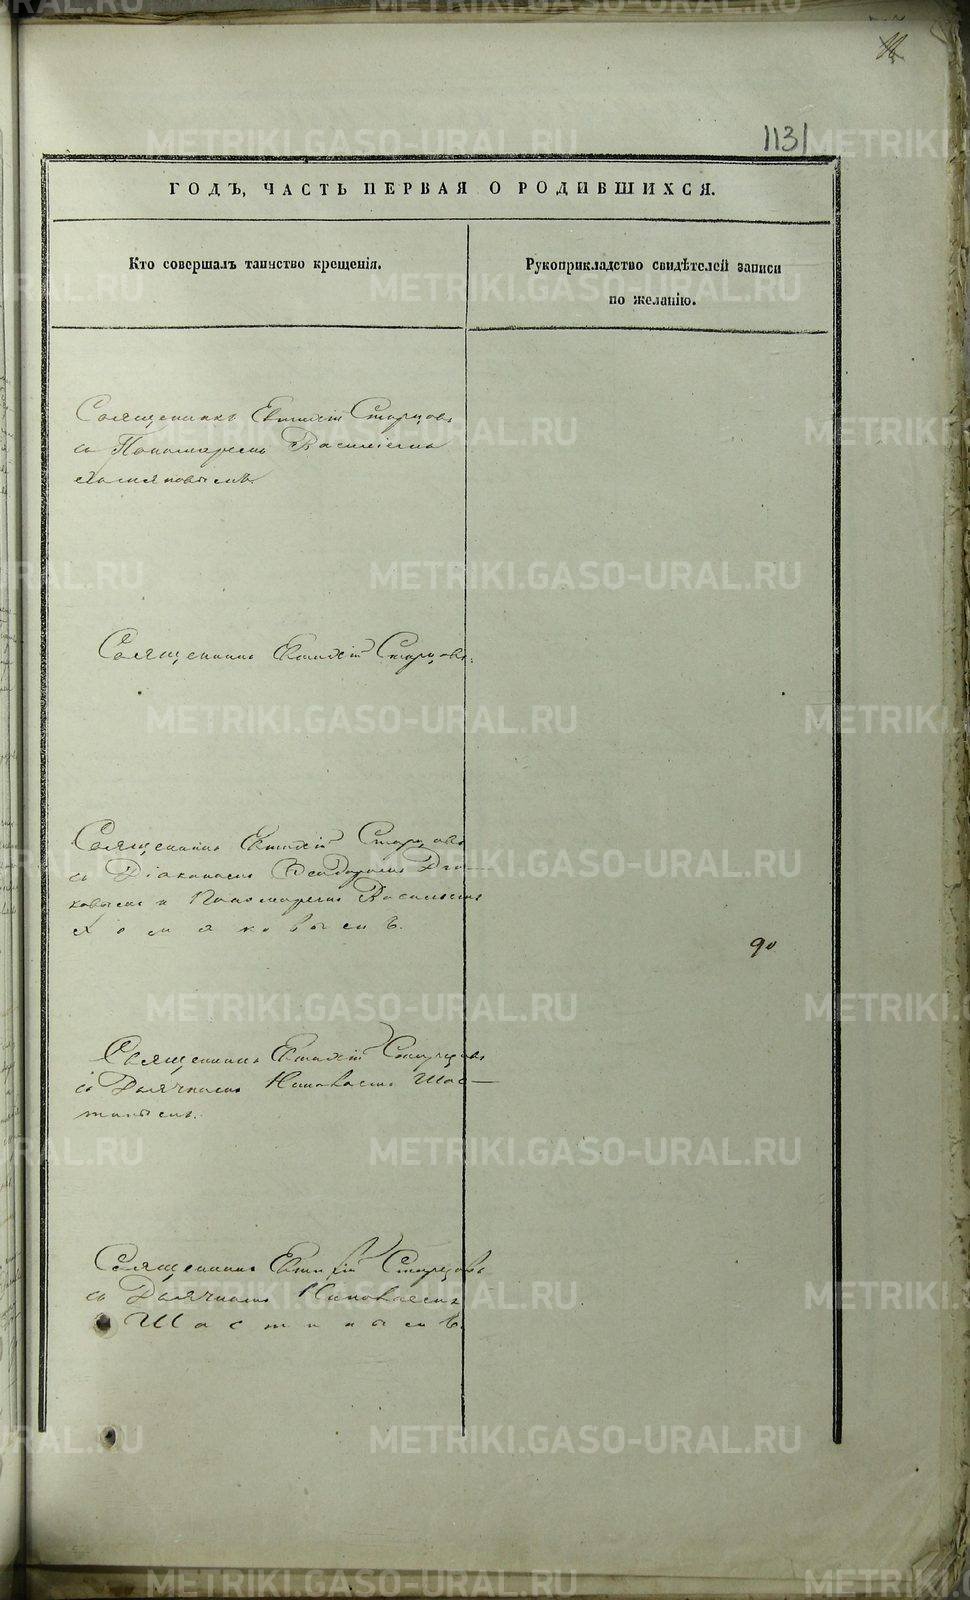 1131
ГОДЪ, ЧАСТЬ ПЕРВАЯ О РОДИВШИХСЯ.
Кто совершалъ таинство крещенія.
Рукоприкладство свидѣтелей записи
по желанію.
Священникъ Евтихій Старцовъ
съ Пономаремъ Василіемъ
Хомяковымъ.
Священникъ Евтихій Старцовъ.
Священникъ Евтихій Старцовъ
съ Діакономъ Ѳеодоромъ
ковымъ и Пономаремъ Васильемъ
Хомяковымъ.
90
Священникъ Евтихій Старцовъ
съ Дьячкомъ Шас-
тинымъ.
Священникъ Евтихій Старцовъ
съ Дьячкомъ
Шастинымъ.
METRIKI.GASO-URAL.RU